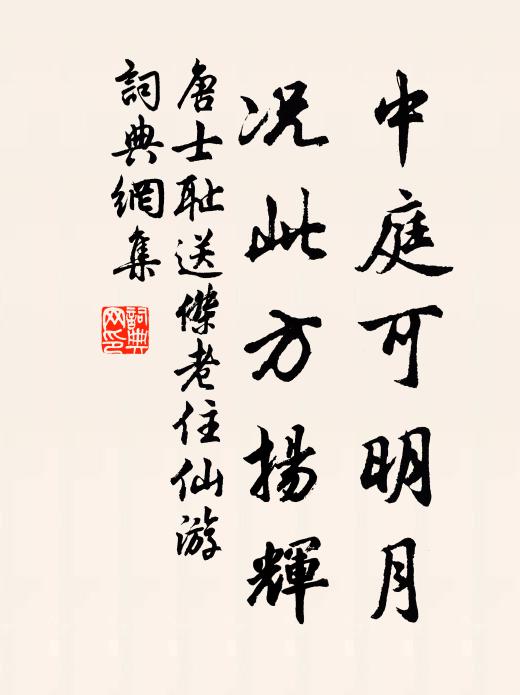 中庭可明月
况此方揚輝
唐士耻送傑老住仙游
詞典網集
詞典网印